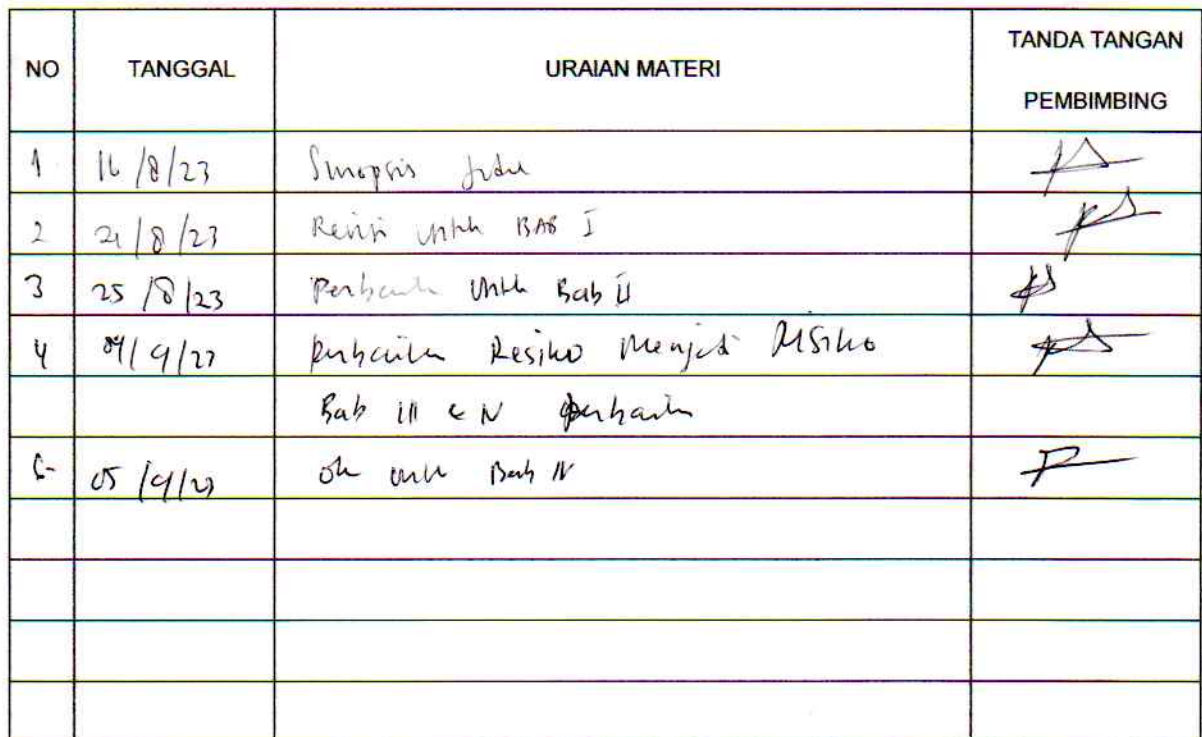 NO TANGGAL URAIAN MATERI TANDA TANGAN PEMBIMBING
1 16/8/23 Sinopsis Judul
2 21/8/23 Revisi untuk BAB I
3 25/8/23 Perbaikan untuk Bab II
4 04/9/23 perbaikan Resiko Menjadi Risiko
Bab III & IV perbaikan
5 05/9/23 ok untuk Bab IV